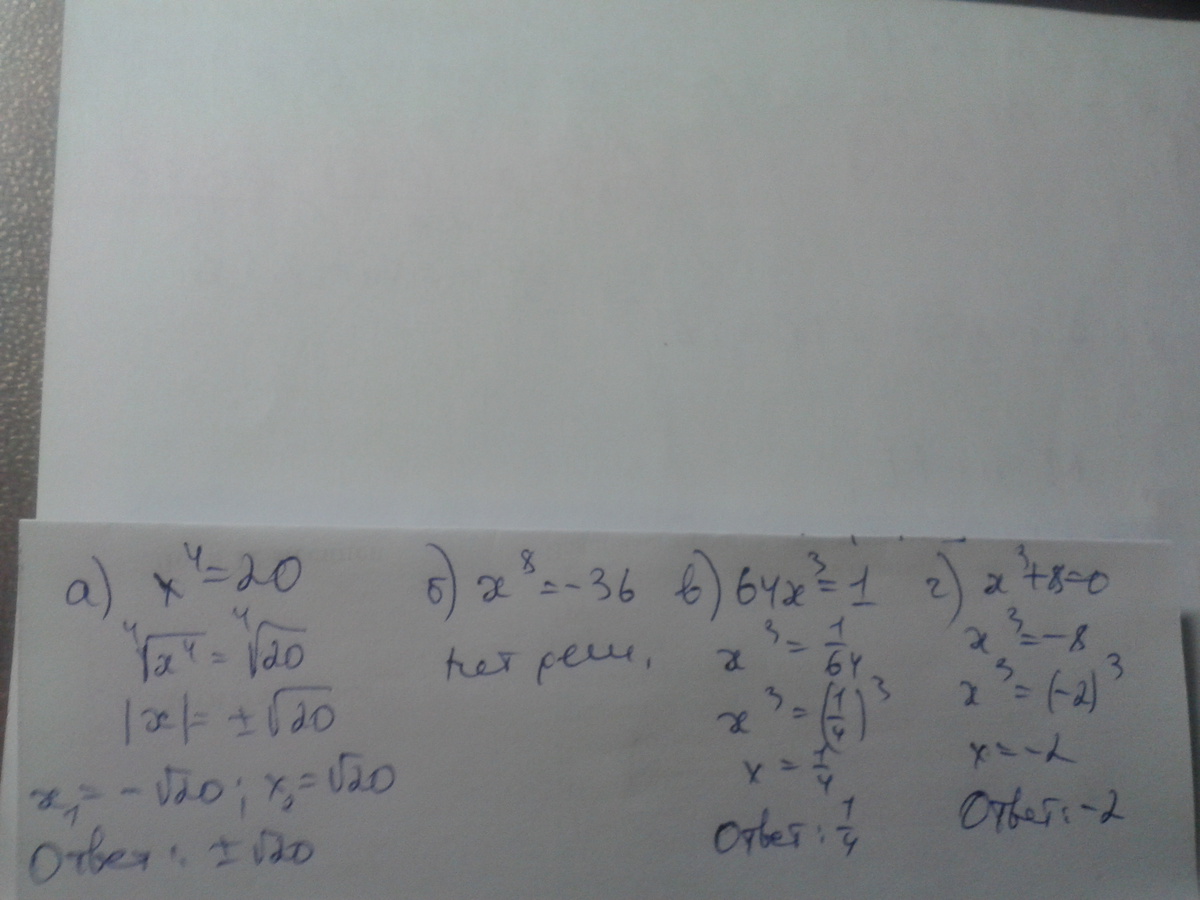 а) x⁴=20
⁴√x⁴ = ⁴√20
|x|= ±√20
x₁= -√20; x₂=√20
Ответ: ±√20
б) x⁸=-36
нет реш.
в) 64x³=1
x³=1/64
x³=(1/4)³
x=1/4
Ответ: 1/4
г) x³+8=0
x³=-8
x³=(-2)³
x=-2
Ответ: -2